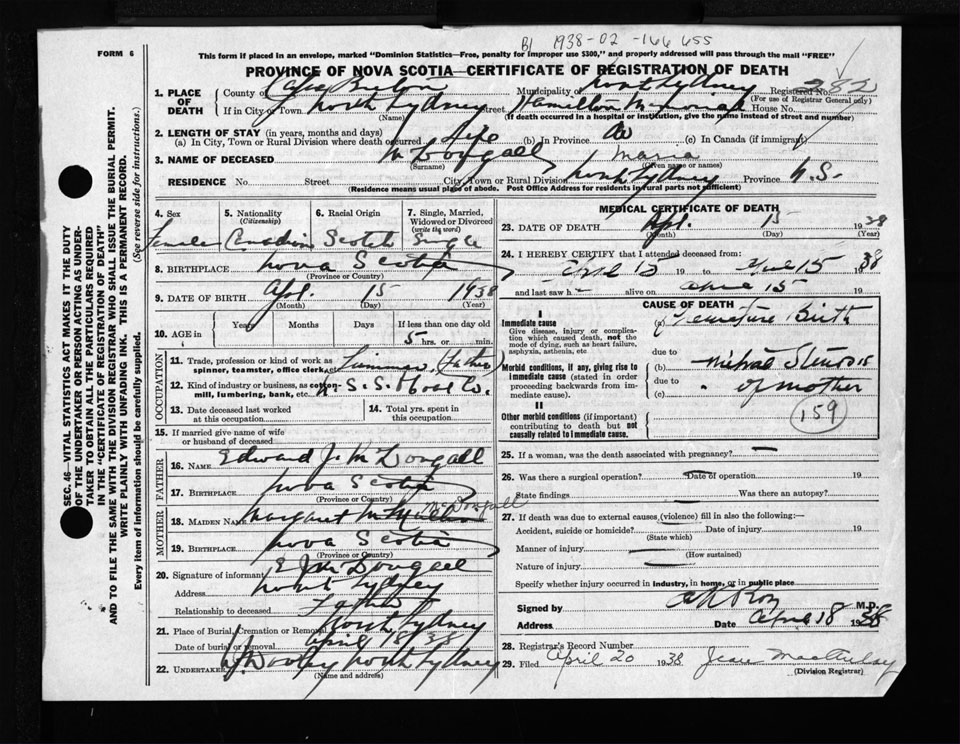 B1 1938-02-166 655
FORM 6
This form if placed in an envelope, marked "Dominion Statistics—Free, penalty for improper use $300," and properly addressed will pass through the mail "FREE"
PROVINCE OF NOVA SCOTIA—CERTIFICATE OF REGISTRATION OF DEATH
SEC. 46—VITAL STATISTICS ACT MAKES IT THE DUTY
OF THE UNDERTAKER OR PERSON ACTING AS UNDER-
TAKER TO OBTAIN ALL THE PARTICULARS REQUIRED
IN THE "CERTIFICATE OF REGISTRATION OF DEATH"
AND TO FILE THE SAME WITH THE DIVISION REGISTRAR WHO SHALL ISSUE THE BURIAL PERMIT.
WRITE PLAINLY WITH UNFADING INK. THIS IS A PERMANENT RECORD.
Every item of information should be carefully supplied. (See reverse side for instructions.)
1. PLACE OF DEATH County of Cape Breton Municipality North Sydney Registered No. 232
(For use of Registrar General only)
If in City or Town North Sydney Street Hamilton Memorial House No.
(Name) (If death occurred in a hospital or institution, give the name instead of street and number)
2. LENGTH OF STAY (in years, months and days)
(a) In City, Town or Rural Division where death occurred Life (b) In Province (c) In Canada (if immigrant)
3. NAME OF DECEASED McDougall Maria
(Surname) (Given name or names)
RESIDENCE No. Street City, Town or Rural Division North Sydney Province N.S.
(Residence means usual place of abode. Post Office Address for residents in rural parts not sufficient)
4. Sex Female
5. Nationality (Citizenship) Canadian
6. Racial Origin Scotch
7. Single, Married, Widowed or Divorced (write the word) Single
8. BIRTHPLACE Nova Scotia
(Province or Country)
9. DATE OF BIRTH Apl. 15 1938
(Month) (Day) (Year)
10. AGE in Years Months Days If less than one day old
5 hrs. or min.
OCCUPATION
11. Trade, profession or kind of work as
spinner, teamster, office clerk, etc. (father)
12. Kind of industry or business, as cotton-
mill, lumbering, bank, etc. N.S.S. & Coal Co.
13. Date deceased last worked
at this occupation
14. Total yrs. spent in
this occupation
15. If married give name of wife
or husband of deceased
FATHER
16. NAME Edward J. McDougall
17. BIRTHPLACE Nova Scotia
(Province or Country)
MOTHER
18. MAIDEN NAME Margaret McDougall
19. BIRTHPLACE Nova Scotia
(Province or Country)
20. Signature of informant E J McDougall
Address North Sydney
Relationship to deceased Father
21. Place of Burial, Cremation or Removal North Sydney
Date of burial or removal April 18 38
22. UNDERTAKER Dooley North Sydney
(Name and address)
MEDICAL CERTIFICATE OF DEATH
23. DATE OF DEATH Apl. 15 1938
(Month) (Day) (Year)
24. I HEREBY CERTIFY that I attended deceased from:
April 15 19 to April 15 1938
and last saw h alive on April 15 19
CAUSE OF DEATH
I
Immediate cause
Give disease, injury or complica-
tion which caused death, not the
mode of dying, such as heart failure,
asphyxia, asthenia, etc.
(a) Premature Birth
due to
Morbid conditions, if any, giving rise to
immediate cause (stated in order
proceeding backwards from im-
mediate cause).
(b) Mitral Stenosis
due to
(c) of mother
II
Other morbid conditions (if important)
contributing to death but not
causally related to immediate cause.
159
25. If a woman, was the death associated with pregnancy?
26. Was there a surgical operation? Date of operation 19
State findings Was there an autopsy?
27. If death was due to external causes (violence) fill in also the following:—
Accident, suicide or homicide? Date of injury 19
(State which)
Manner of injury
(How sustained)
Nature of injury
Specify whether injury occurred in industry, in home, or in public place
Signed by M.D.
Address Date April 18 1938
28. Registrar's Record Number
29. Filed April 20 1938 Jean
(Division Registrar)